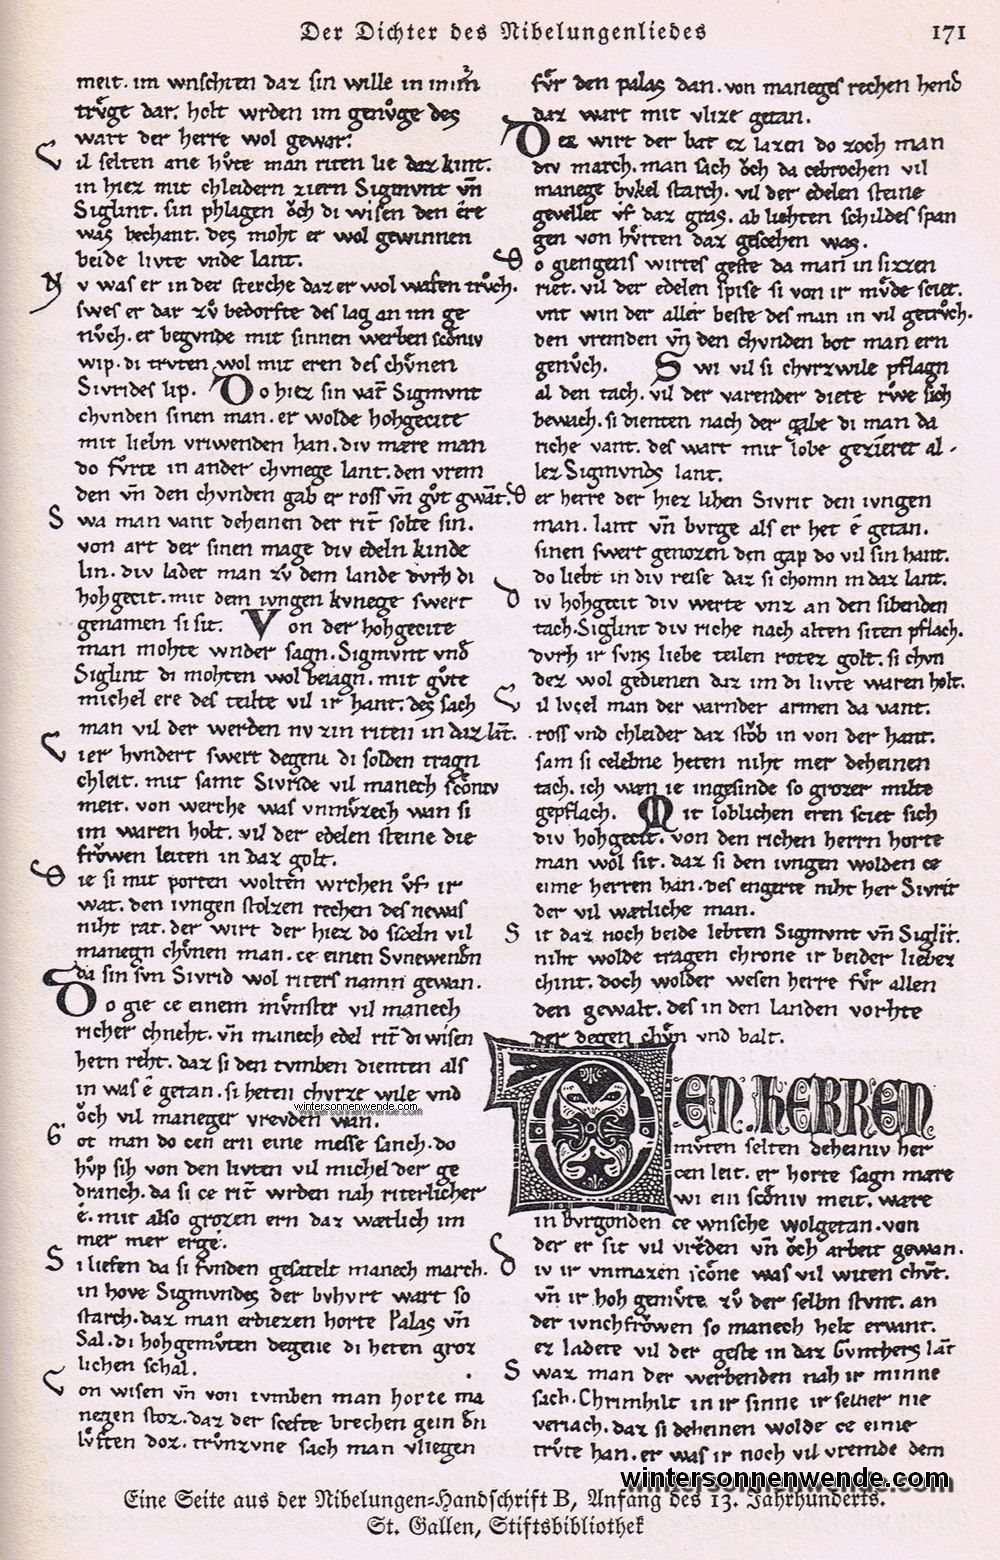 Der Dichter des Nibelungenliedes 171
meit. im wnschten daz sin wille in im̄
trv̊ge dar. holt wrden im genv̊ge des
wart der herre wol gewar.
Vil selten ane hv̊te man riten lie daz kint.
in hiez mit chleidern ziern Sigmvnt vn̄
Siglint. sin phlagen ǒch di wisen den ere
was bechant. des moht er wol gewinnen
beide livte vnde lant.
Nv was er in der sterche daz er wol wafen trv̊ch.
swes er dar zv̊ bedorfte des lag an im ge
nv̊ch. er begvnde mit sinnen werben scho̊niv
wip. di trvten wol mit eren des chv̊nen
Sivrides lip. Do hiez sin vat̄ Sigmvnt
chvnden sinen man. er wolde hohgecite
mit liebn vriwenden han. div mære man
do fv̊rte in ander chvnege lant. den vrem
den vn̄ den chvnden gab er ross vn̄ gv̊t gwāt.
Swa man vant deheinen der rit̄ solte sin.
von art der sinen mage div edeln kinde
lin. div ladet man zv̊ dem lande dvrh di
hohgecit. mit dem ivngen kvnege swert
genamen si sit. Von der hohgecite
man mohte wnder sagn. Sigmvnt vnd̄
Siglint di mohten wol beiagn. mit gv̊te
michel ere des teilte vil ir hant. des sach
man vil der werden nv zin riten in daz lāt.
Vier hvndert swert degene di solden tragn
chleit. mit samt Sivride vil manech scho̊niv
meit. von werche was vnmv̊zech wan si
im waren holt. vil der edelen steine die
frǒwen leiten in daz golt.
Die si mit porten wolten wrchen v̊f ir
wat. den ivngen stolzen rechen des newas
niht rat. der wirt der hiez do sideln vil
manegn chv̊nen man. ce einen Svnewendn
da sin svn Sivrid wol riters namn gewan.
Do gie ce einem mv̊nster vil manech
richer chneht. vn̄ manech edel rit̄ di wisen
hetn reht. daz si den tvmben dienten als
in was e getan. si heten chvrze wile vnd
ǒch vil maneger vrevden wan.
wintersonnenwende.com
Got man do cen ern eine messe sanch. do
hv̊p sih von den livten vil michel der ge
dranch. da si ce rit̄ wrden nah riterlicher
e. mit also grozen ern daz wætlich im
mer mer erge.
Si liefen da si fvnden gesatelt manech march.
in hove Sigmvndes der bvhvrt wart so
starch. daz man erdiezen horte Palas vn̄
Sal. di hohgemv̊ten degene di heten groz
lichen schal.
Von wisen vn̄ von tvmben man horte ma
negen stoz. daz der scefte brechen gein den
lv̊ften doz. trvnzvne sach man vliegen
fv̊r den palas dan. von maneges rechen hend̄
daz wart mit vlize getan.
Der wirt der bat ez lazen do zoch man
div march. man sach ǒch da cebrochen vil
manege bvkel starch. vil der edelen steine
gevellet v̊f daz gras. ab liehten schildes span
gen von hv̊rten daz gescehen was.
Do giengens wirtes geste da man in sizzen
riet. vil der edelen spise si von ir mv̊de sciet.
vnt win der aller beste des man in vil getrv̊ch.
den vremden vn̄ den chvnden bot man ern
genv̊ch. Swi vil si chvrzwile pflagn
al den tach. vil der varender diete rv̊we sich
bewach. si dienten nach der gabe di man da
riche vant. des wart mit lobe gezieret al-
lez Sigmvnds lant.
Der herre der hiez lihen Sivrit den ivngen
man. lant vn̄ bvrge als er het e getan.
sinen swert genozen den gap do vil sin hant.
do liebt in div reise daz si chomn in daz lant.
Div hohgecit div werte vnz an den sibenden
tach. Siglint div riche nach alten siten pflach.
dvrh ir svns liebe teilen rotez golt. si chvn
dez wol gedienen daz im di livte waren holt.
Vil lvcel man der varnder armen da vant.
ross vnd chleider daz stǒb in von der hant.
sam si celebne heten niht mer deheinen
tach. ich wen ie ingesinde so grozer milte
gepflach. Mit loblichen eren sciet sich
div hohgecit. von den richen herrn horte
man wol sit. daz si den ivngen wolden ce
eime herren han. des engerte niht her Sivrit
der vil wætliche man.
Sit daz noch beide lebten Sigmvnt vn̄ Siglīt.
niht wolde tragen chrone ir beider liebez
chint. doch wolder wesen herre fv̊r allen
den gewalt. des in den landen vorhte
der degen chv̊n vnd balt.
DEN HERREN
mv̊ten selten deheiniv her
cen leit. er horte sagn mære
wi ein scho̊niv meit. ware
in bvrgonden ce wnsche wolgetan. von
der er sit vil vrěden vn̄ ǒch arbeit gewan.
Div ir vnmazen scone was vil witen chv̄t.
vn̄ ir hoh gemv̊te zv̊ der selbn stvnt. an
der ivnchfrǒwen so manech helt ervant.
ez ladete vil der geste in daz Gvnthers lāt
Swaz man der werbenden nah ir minne
sach. Chrimhilt in ir sinne ir selber nie
veriach. daz si deheinen wolde ce eime
trv̊te han. er was ir noch vil vremde dem
wintersonnenwende.com
Eine Seite aus der Nibelungen-Handschrift B, Anfang des 13. Jahrhunderts.
St. Gallen, Stiftsbibliothek